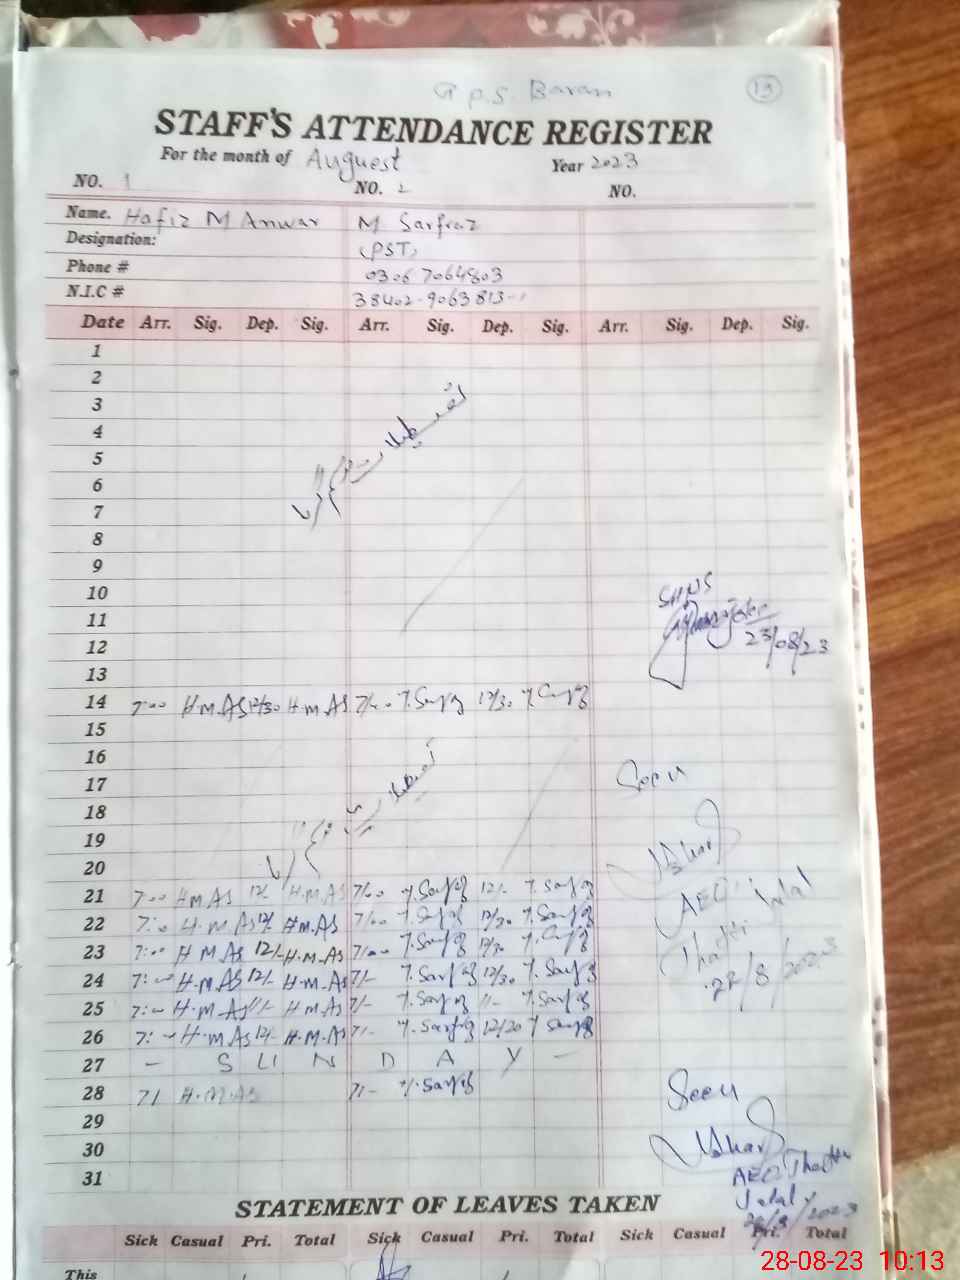 G P.S. Baran
13
STAFF'S ATTENDANCE REGISTER
For the month of Auguest Year 2023
NO. 1 NO. 2 NO.
Name. Hafiz M Anwar M Sarfraz
Designation: (PST)
Phone # 0306 7064803
N.I.C # 38402-9063813-
Date Arr. Sig. Dep. Sig. Arr. Sig. Dep. Sig. Arr. Sig. Dep. Sig.
1
2
3
4
5
6
7
8
9
10
11
12 23/08/23
13
14 7:00 H.M.AS 12/30 H.M.AS 7/00 12/30
15
16
17 Seen
18
19
20
21 7:00 H.M.AS 12/- H.M.AS 7/00 12/-
22 7:00 H.M.AS 12/- H.M.AS 7/00 12/30
23 7:00 H.M.AS 12/- H.M.AS 7/00 12/30
24 7:00 H.M.AS 12/- H.M.AS 7/- 12/30
25 7:00 H.M.AS 11/- H.M.AS 7/- 11/-
26 7:00 H.M.AS 12/- H.M.AS 7/- 12/20
AEO Jalal
22/8/2023
27 - S U N D A Y -
28 7/ H.M.AS 7/- Seen
29
30
31 AEO
Jalal
STATEMENT OF LEAVES TAKEN
Sick Casual Pri. Total Sick Casual Pri. Total Sick Casual Pri. Total
This
28-08-23 10:13